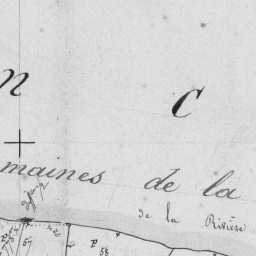 n C
maines de la
de la Rivière
P 58
57